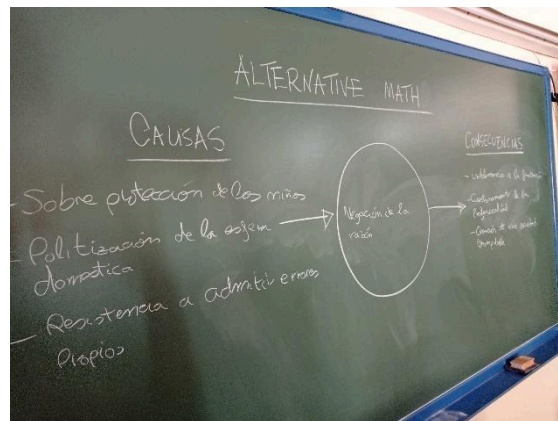 ALTERNATIVE MATH
CAUSAS
- Sobre protección de los niños
- Politización de la esfera
doméstica
- Resistencia a admitir errores
propios
Negación de la
razón
CONSECUENCIAS
- intolerancia a la
de la
- Creación de una sociedad